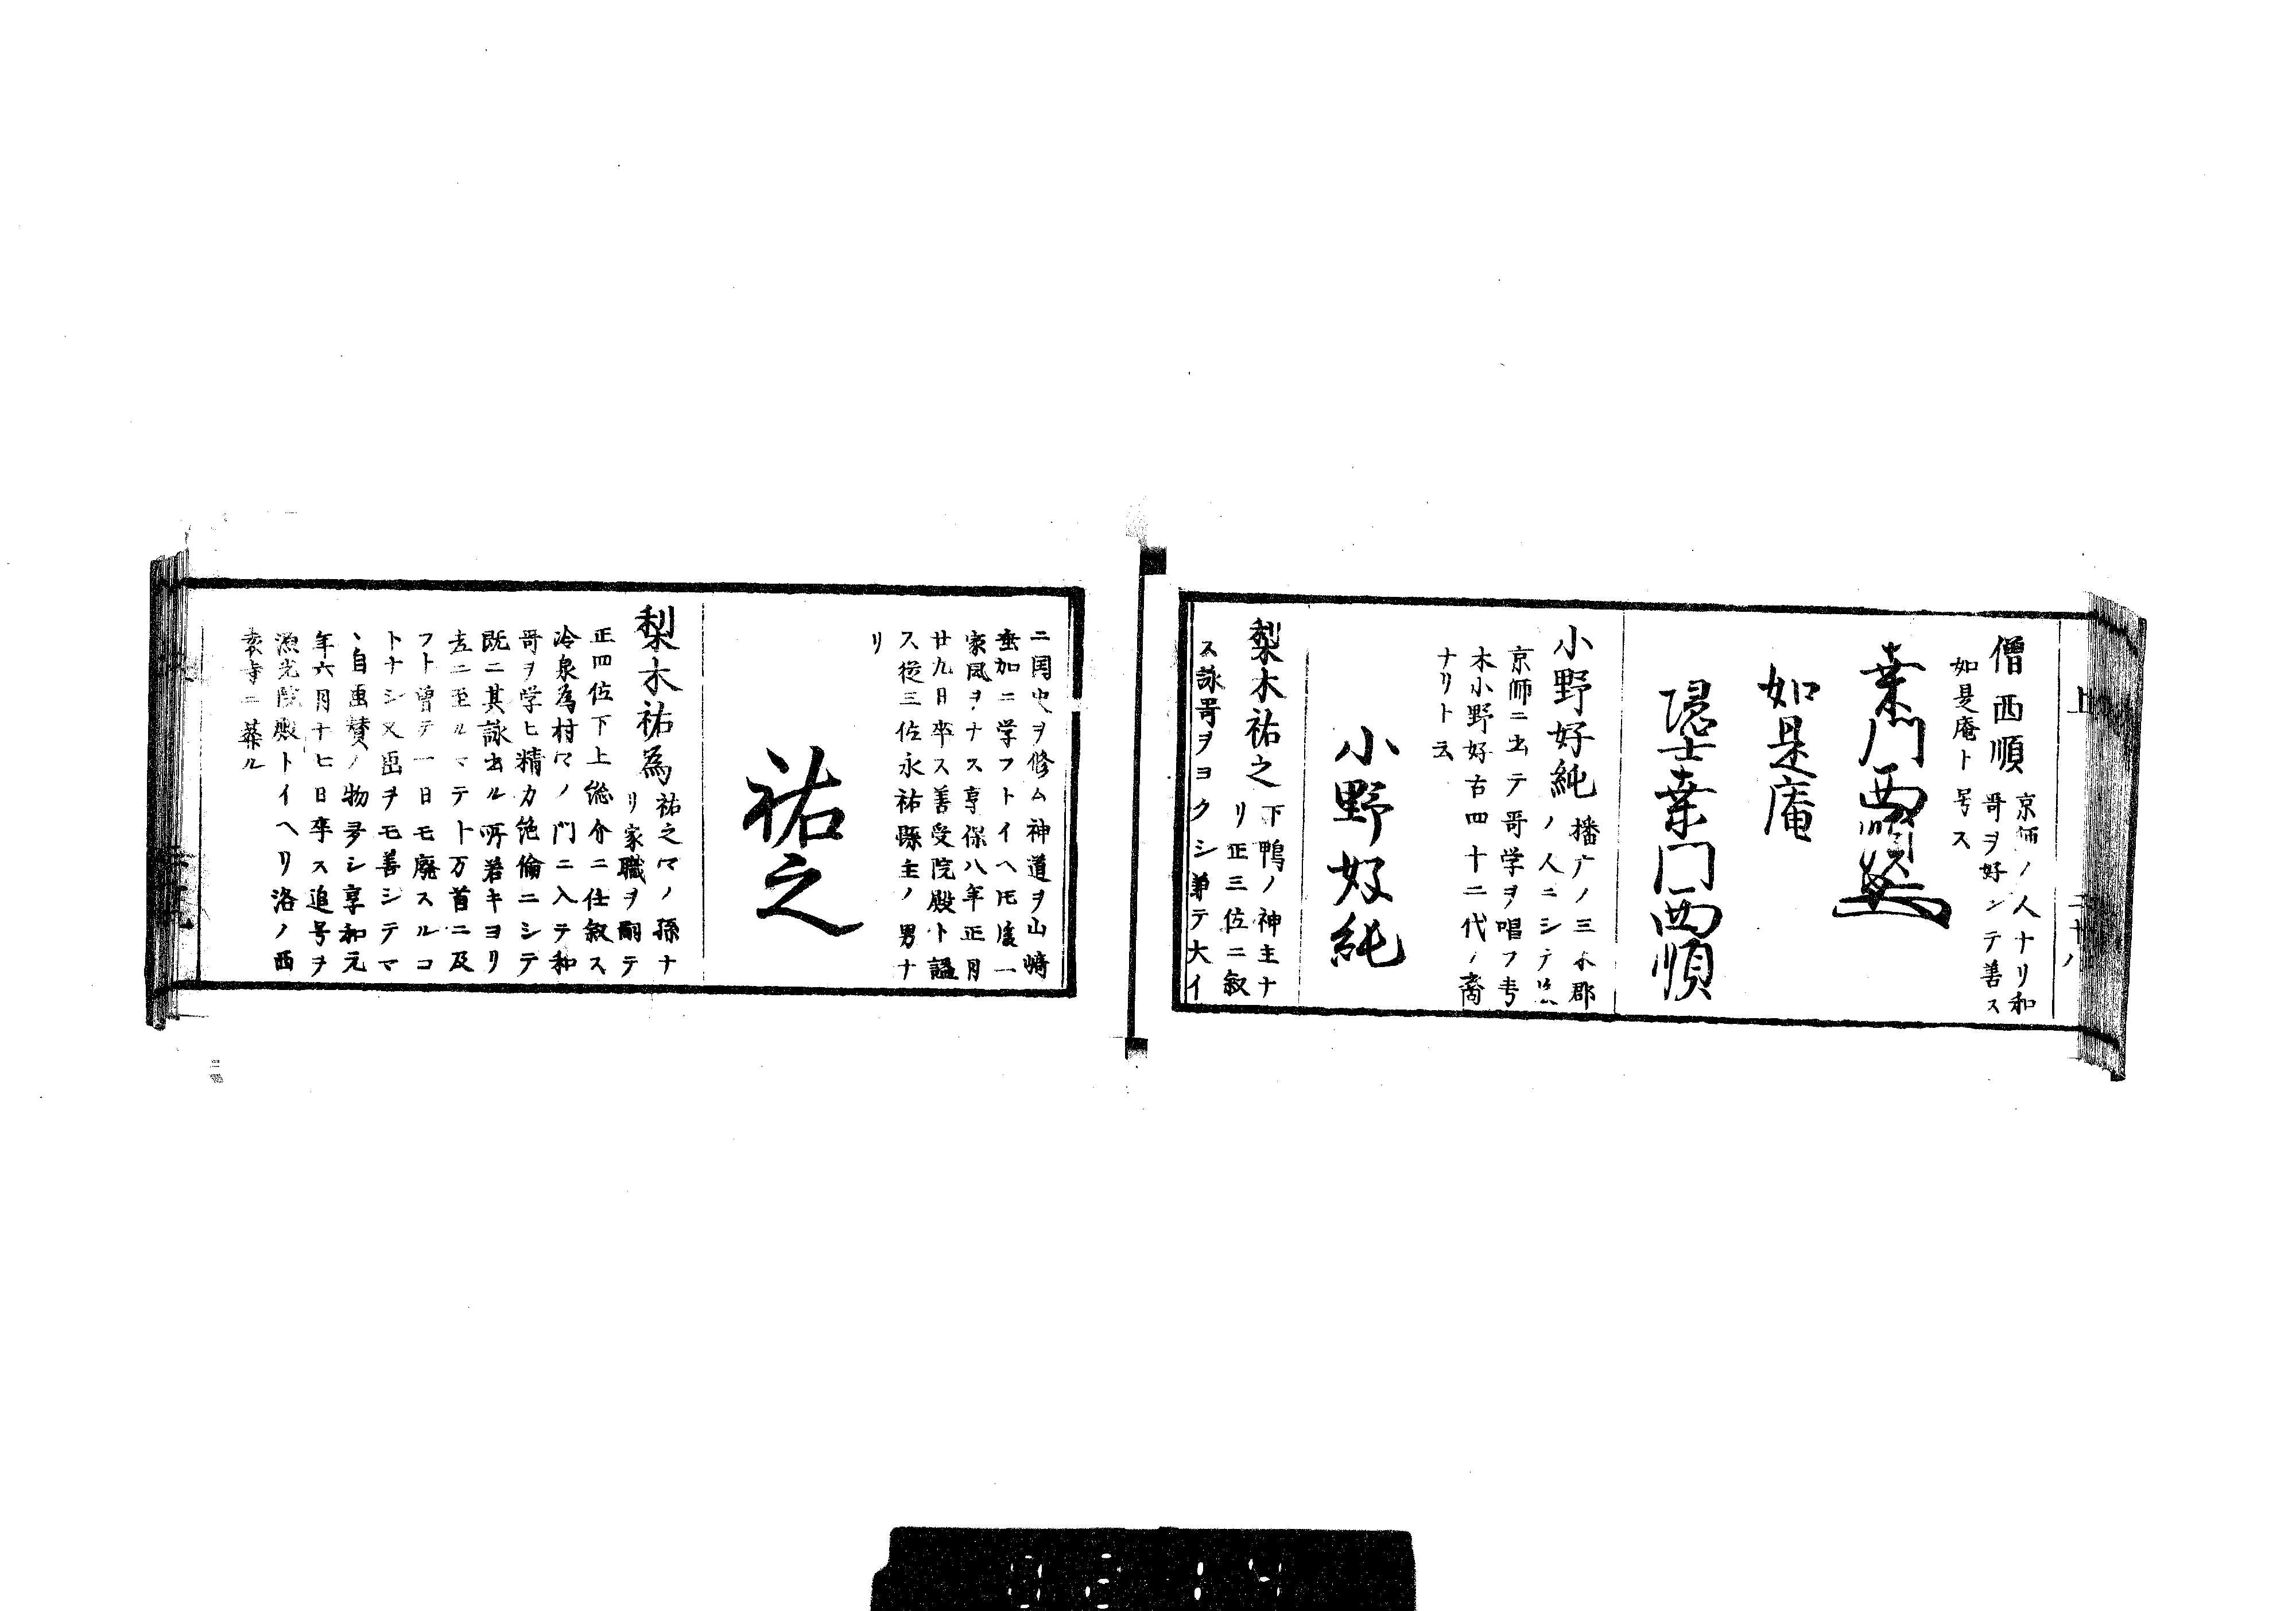 上 二十八
僧西順 京師ノ人ナリ和
哥ヲ好ンテ善ス
如是庵ト号ス
桒門西順
如是庵
隠士桒門西順
小野好純 播广ノ三木郡
ノ人ニシテ
京師ニ出テ哥学ヲ唱フ
木小野好古四十二代ノ裔
ナリト云
小野好純
梨木祐之 下鴨ノ神主ナ
リ正三位ニ叙
ス詠哥ヲヨクシ兼テ大イ
ニ国史ヲ修ム神道ヲ山崎
垂加ニ学フトイヘ𪜈後一
家風ヲナス享保八年正月
廿九日卒ス善受院殿ト謚
ス従三位永祐縣主ノ男ナ
リ
祐之
梨木祐為 祐之ノ孫ナ
リ家職ヲ嗣テ
正四位下上総介ニ任叙ス
冷泉為村ノ門ニ入テ和
哥ヲ学ヒ精力絶倫ニシテ
既ニ其詠出ル所若キヨリ
老ニ至ルマテ十万首ニ及
フト曽テ一日モ廃スルコ
トナシ又画ヲモ善シテマ
ヽ自画賛ノ物多シ享和元
年六月十七日卒ス追号ヲ
光院殿トイヘリ洛ノ西
寺ニ葬ル